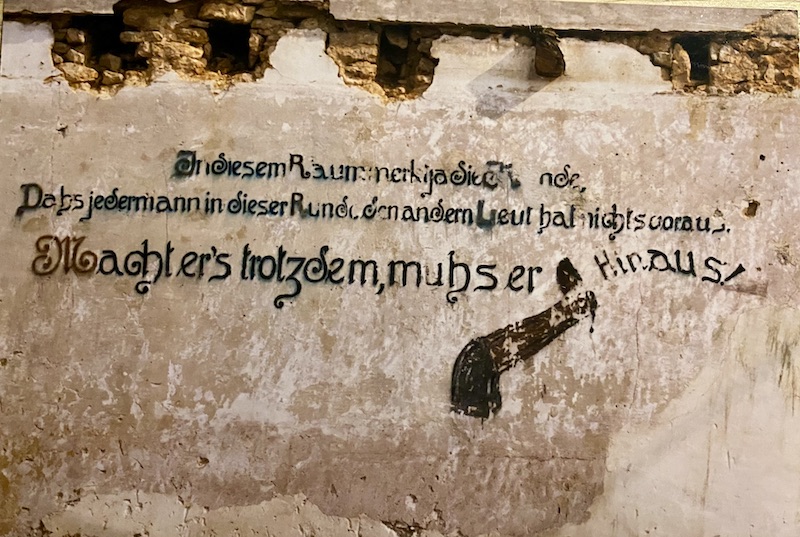 In diesem Raum merk ja die
Dahs jedermann in dieser Runde den andern Leut hat nichts voraus.
Macht er's trotzdem, muhs er Hinaus!